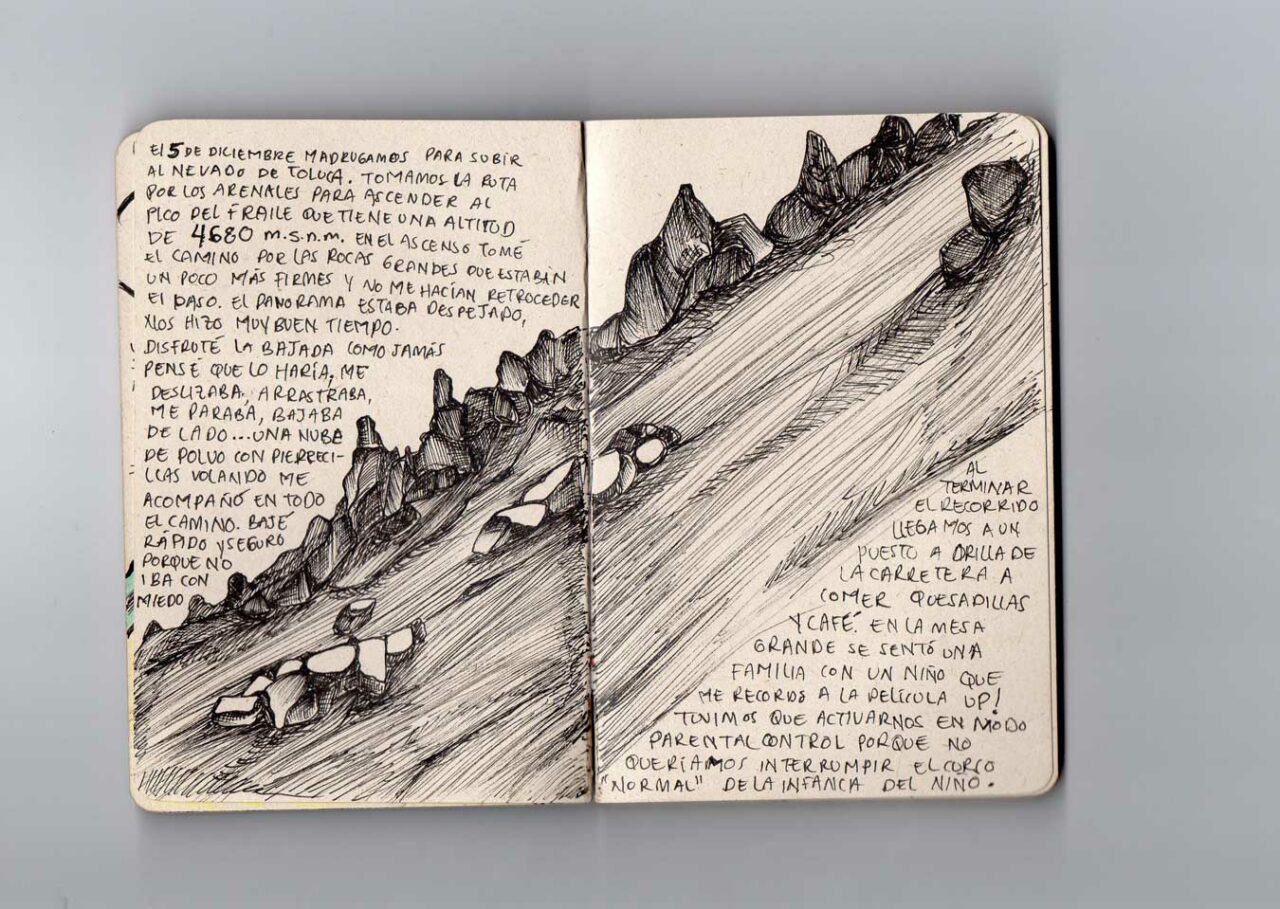 El 5 DE DICIEMBRE MADRUGAMOS PARA SUBIR
AL NEVADO DE TOLUCA. TOMAMOS LA RUTA
POR LOS ARENALES PARA ASCENDER AL
PICO DEL FRAILE QUE TIENE UNA ALTITUD
DE 4680 m.s.n.m. EN EL ASCENSO TOMÉ
EL CAMINO POR LAS ROCAS GRANDES QUE ESTABAN
UN POCO MÁS FIRMES Y NO ME HACÍAN RETROCEDER
El PASO. EL PANORAMA ESTABA DESPEJADO,
NOS HIZO MUY BUEN TIEMPO.
DISFRUTÉ LA BAJADA COMO JAMÁS
PENSÉ QUE LO HARÍA, ME
DESLIZABA, ARRASTRABA,
ME PARABA, BAJABA
DE LADO...UNA NUBE
DE POLVO CON PIERRECI-
LLAS VOLANDO ME
ACOMPAÑÓ EN TODO
EL CAMINO. BAJÉ
RÁPIDO Y SEGURO
PORQUE NO
IBA CON
MIEDO
AL
TERMINAR
EL RECORRIDO
LLEGAMOS A UN
PUESTO A ORILLA DE
LA CARRETERA A
COMER QUESADILLAS
Y CAFÉ. EN LA MESA
GRANDE SE SENTÓ UNA
FAMILIA CON UN NIÑO QUE
ME RECORDÓ A LA PELÍCULA UP!
TUVIMOS QUE ACTIVARNOS EN MODO
PARENTAL CONTROL PORQUE NO
QUERÍAMOS INTERRUMPIR EL CURSO
"NORMAL" DE LA INFANCIA DEL NIÑO.